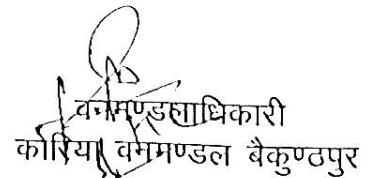 वनमण्डलाधिकारी
कोरिया वनमण्डल बैकुण्ठपुर